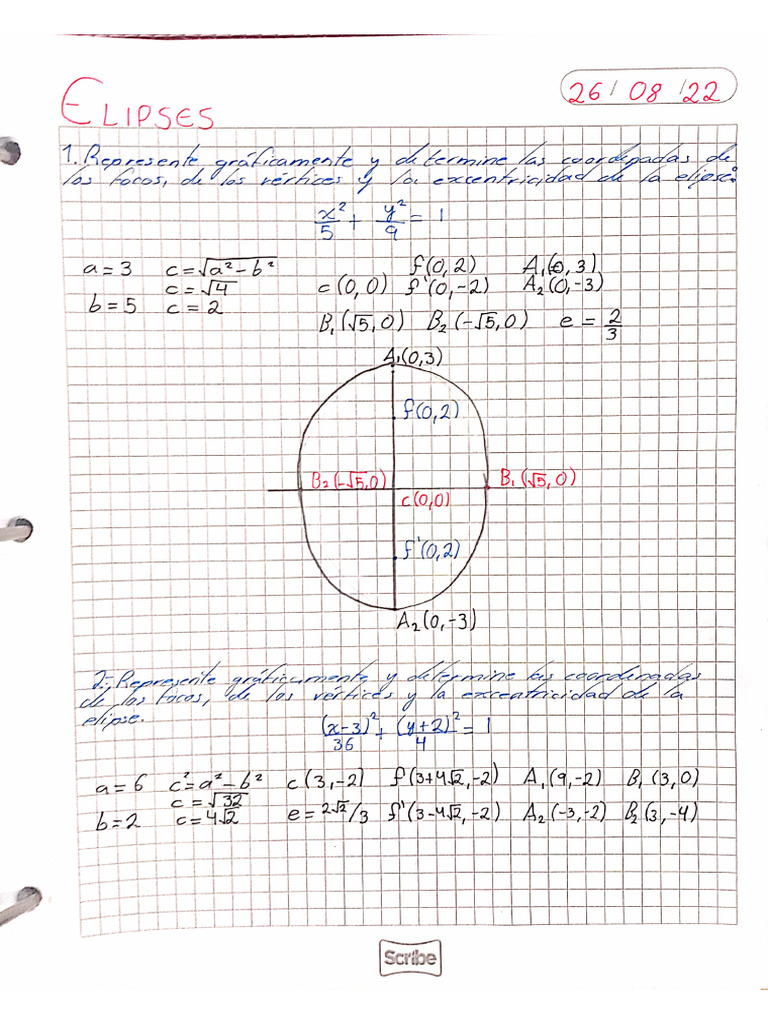 ELIPSES
26/08/22
1. Represente gráficamente y determine las coordenadas de
los focos, de los vértices y la excentricidad de la elipse:
x²/5 + y²/9 = 1
a = 3 c = √a² - b² f(0, 2) A₁(0, 3)
c = √4 c(0, 0) f'(0, -2) A₂(0, -3)
b = 5 c = 2
B₁(√5, 0) B₂(-√5, 0) e = 2/3
A₁(0, 3)
f(0, 2)
B₂(-√5, 0) B₁(√5, 0)
c(0,0)
f'(0, 2)
A₂(0, -3)
2.- Represente gráficamente y determine las coordenadas
de los focos, de los vértices y la excentricidad de la
elipse.
(x-3)²/36 + (y+2)²/4 = 1
a = 6 c² = a² - b² c(3, -2) f(3+4√2, -2) A₁(9, -2) B₁(3, 0)
c = √32
b = 2 c = 4√2 e = 2√2/3 f'(3-4√2, -2) A₂(-3, -2) B₂(3, -4)
Scribe